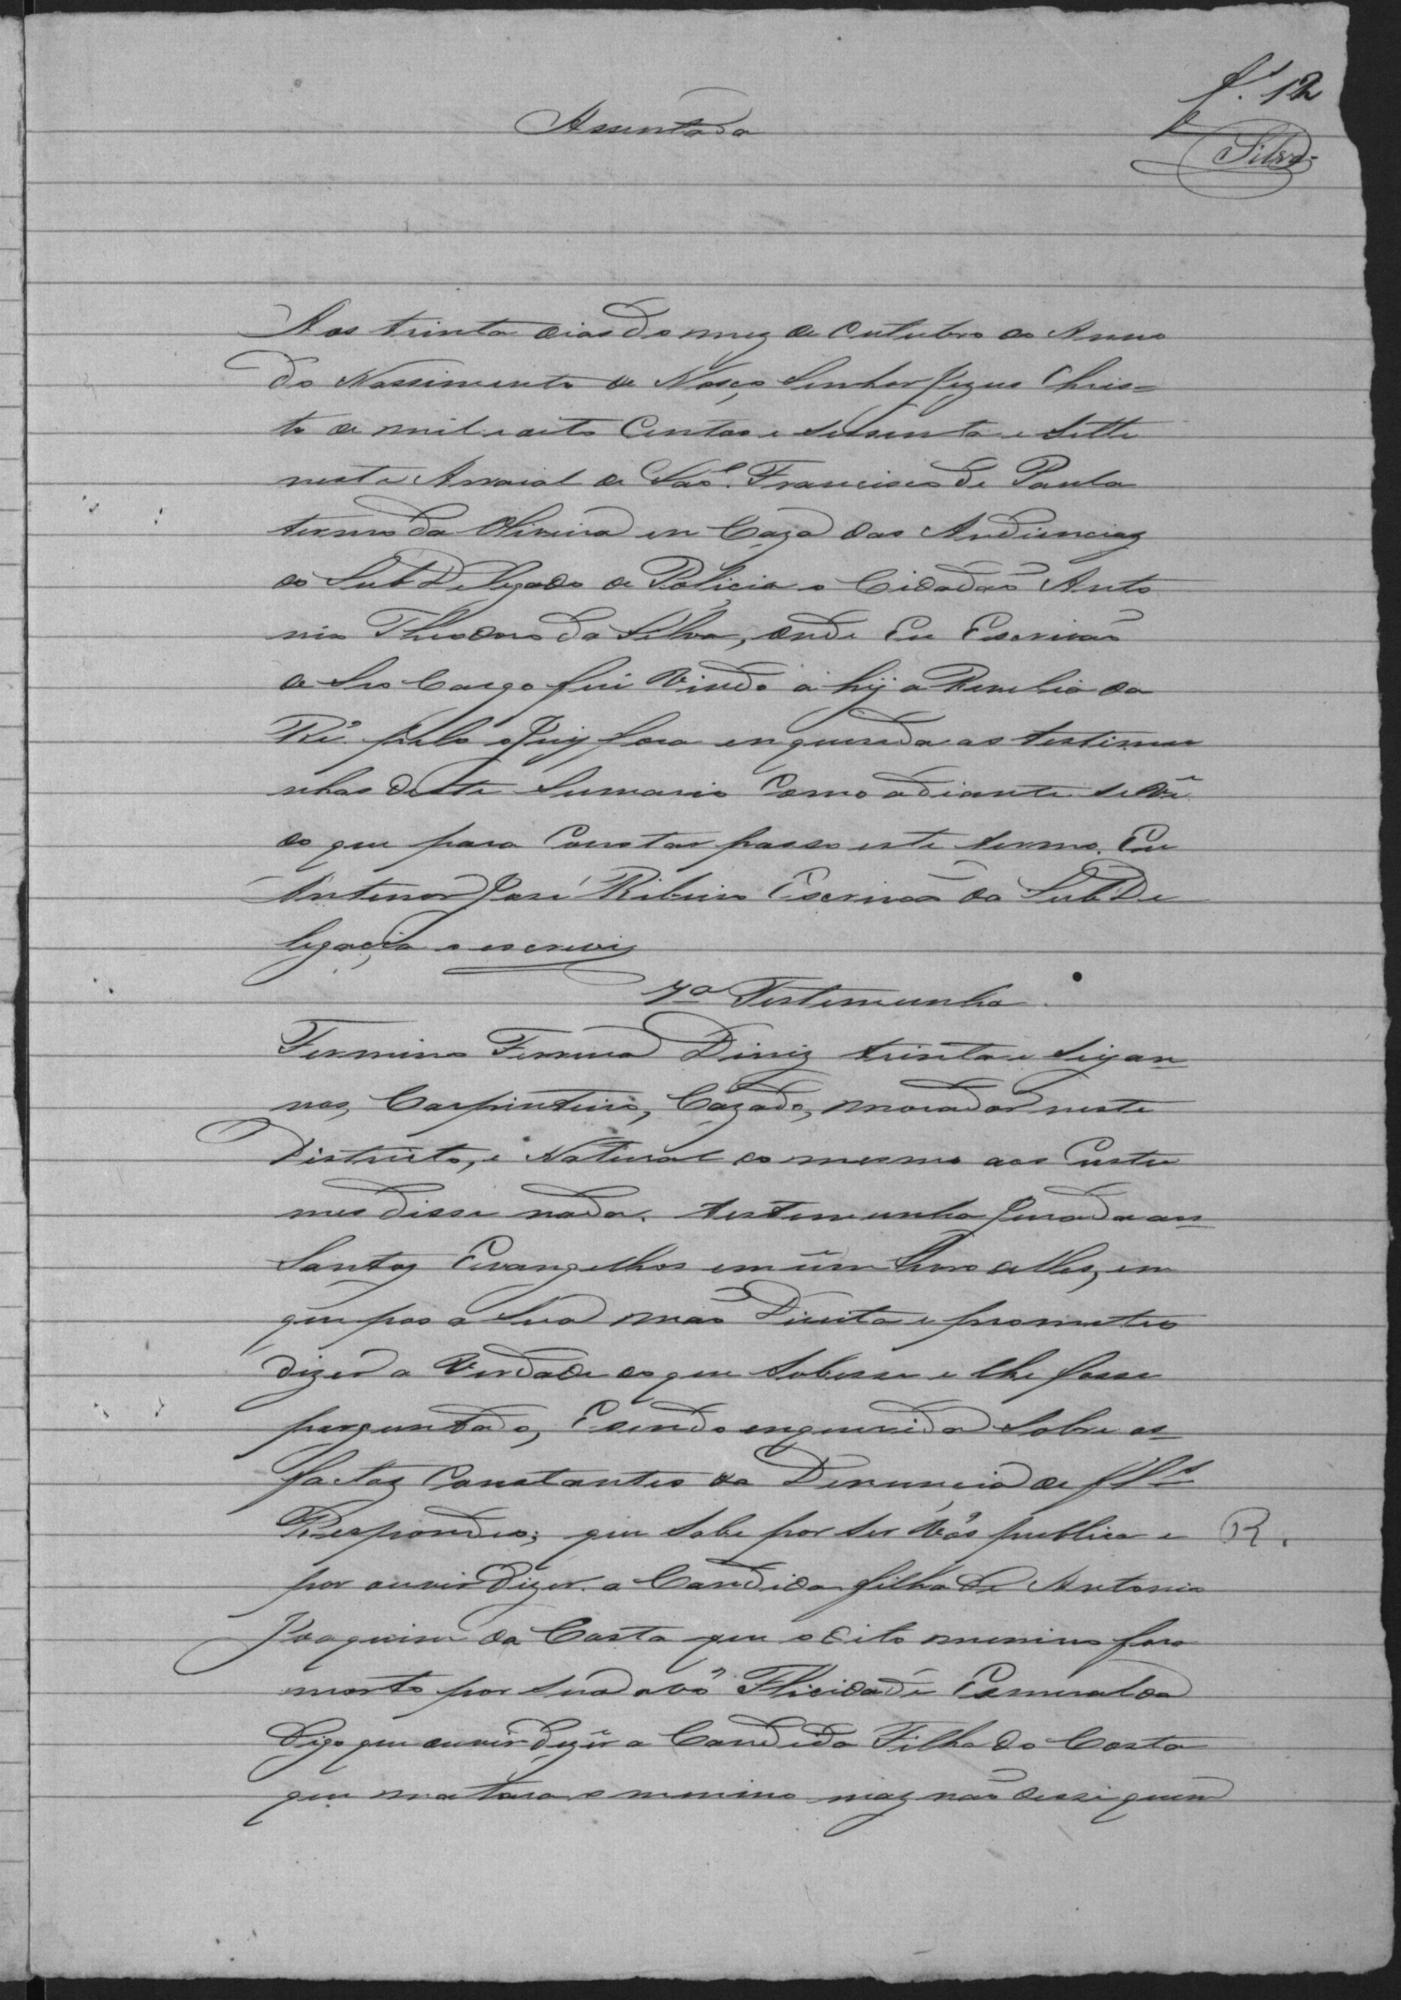 fl. 12
Silva
Assentada
Aos trinta dias do mez de Outubro do Anno
do Nassimento de Nosço Senhor Jezus Chris=
to de mil e oito Centos e sessenta e Sette
neste Arraial de São Francisco de Paula
termo da Oliveira em Caza das Audiencias
do SubDelegado de Policia o Cidadão Anto
nio Theodoro da Silva, onde Eu Escrivão
de Seo Cargo fui Vindo a hy a Revelia da
Ré pelo o Juiz fora enquerida as testimu
nhas deste Sumario Como adiante se Vê
do que para Constar passo este termo. Eu
Antenor José Ribeiro Escrivão da SubDe
legacia o escrevy
7ª Testemunha
Fermino Ferreira Diniz trinta e Seis an
nos, Carpinteiro, Cazado, morador neste
Districto, e Natural do mesmo aos Custu
mes disse nada. testemunha Jurada aos
Santos Evangelhos em um Livro delles, em
que pos a Sua mão Direita e prometteo
dizer a Verdade do que Subesse e lhe fosse
perguntado, E sendo enquerida Sobre os
factos Constantes da Denuncia de fl
Respondeo; que Sabe por ser Vós publica e
R.
por ouvir dizer a Candida filha de Antonio
Joaquim da Costa que o dito menino fora
morto por sua avó Flicidade Esmeralda
Digo que ouvir dizer a Candida Filha do Costa
que matara o menino mas não disse quem